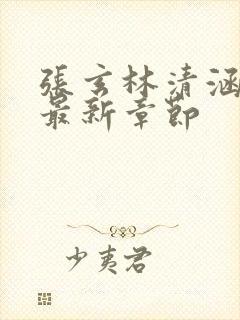 張玄林清涵
最新章節
少夷君